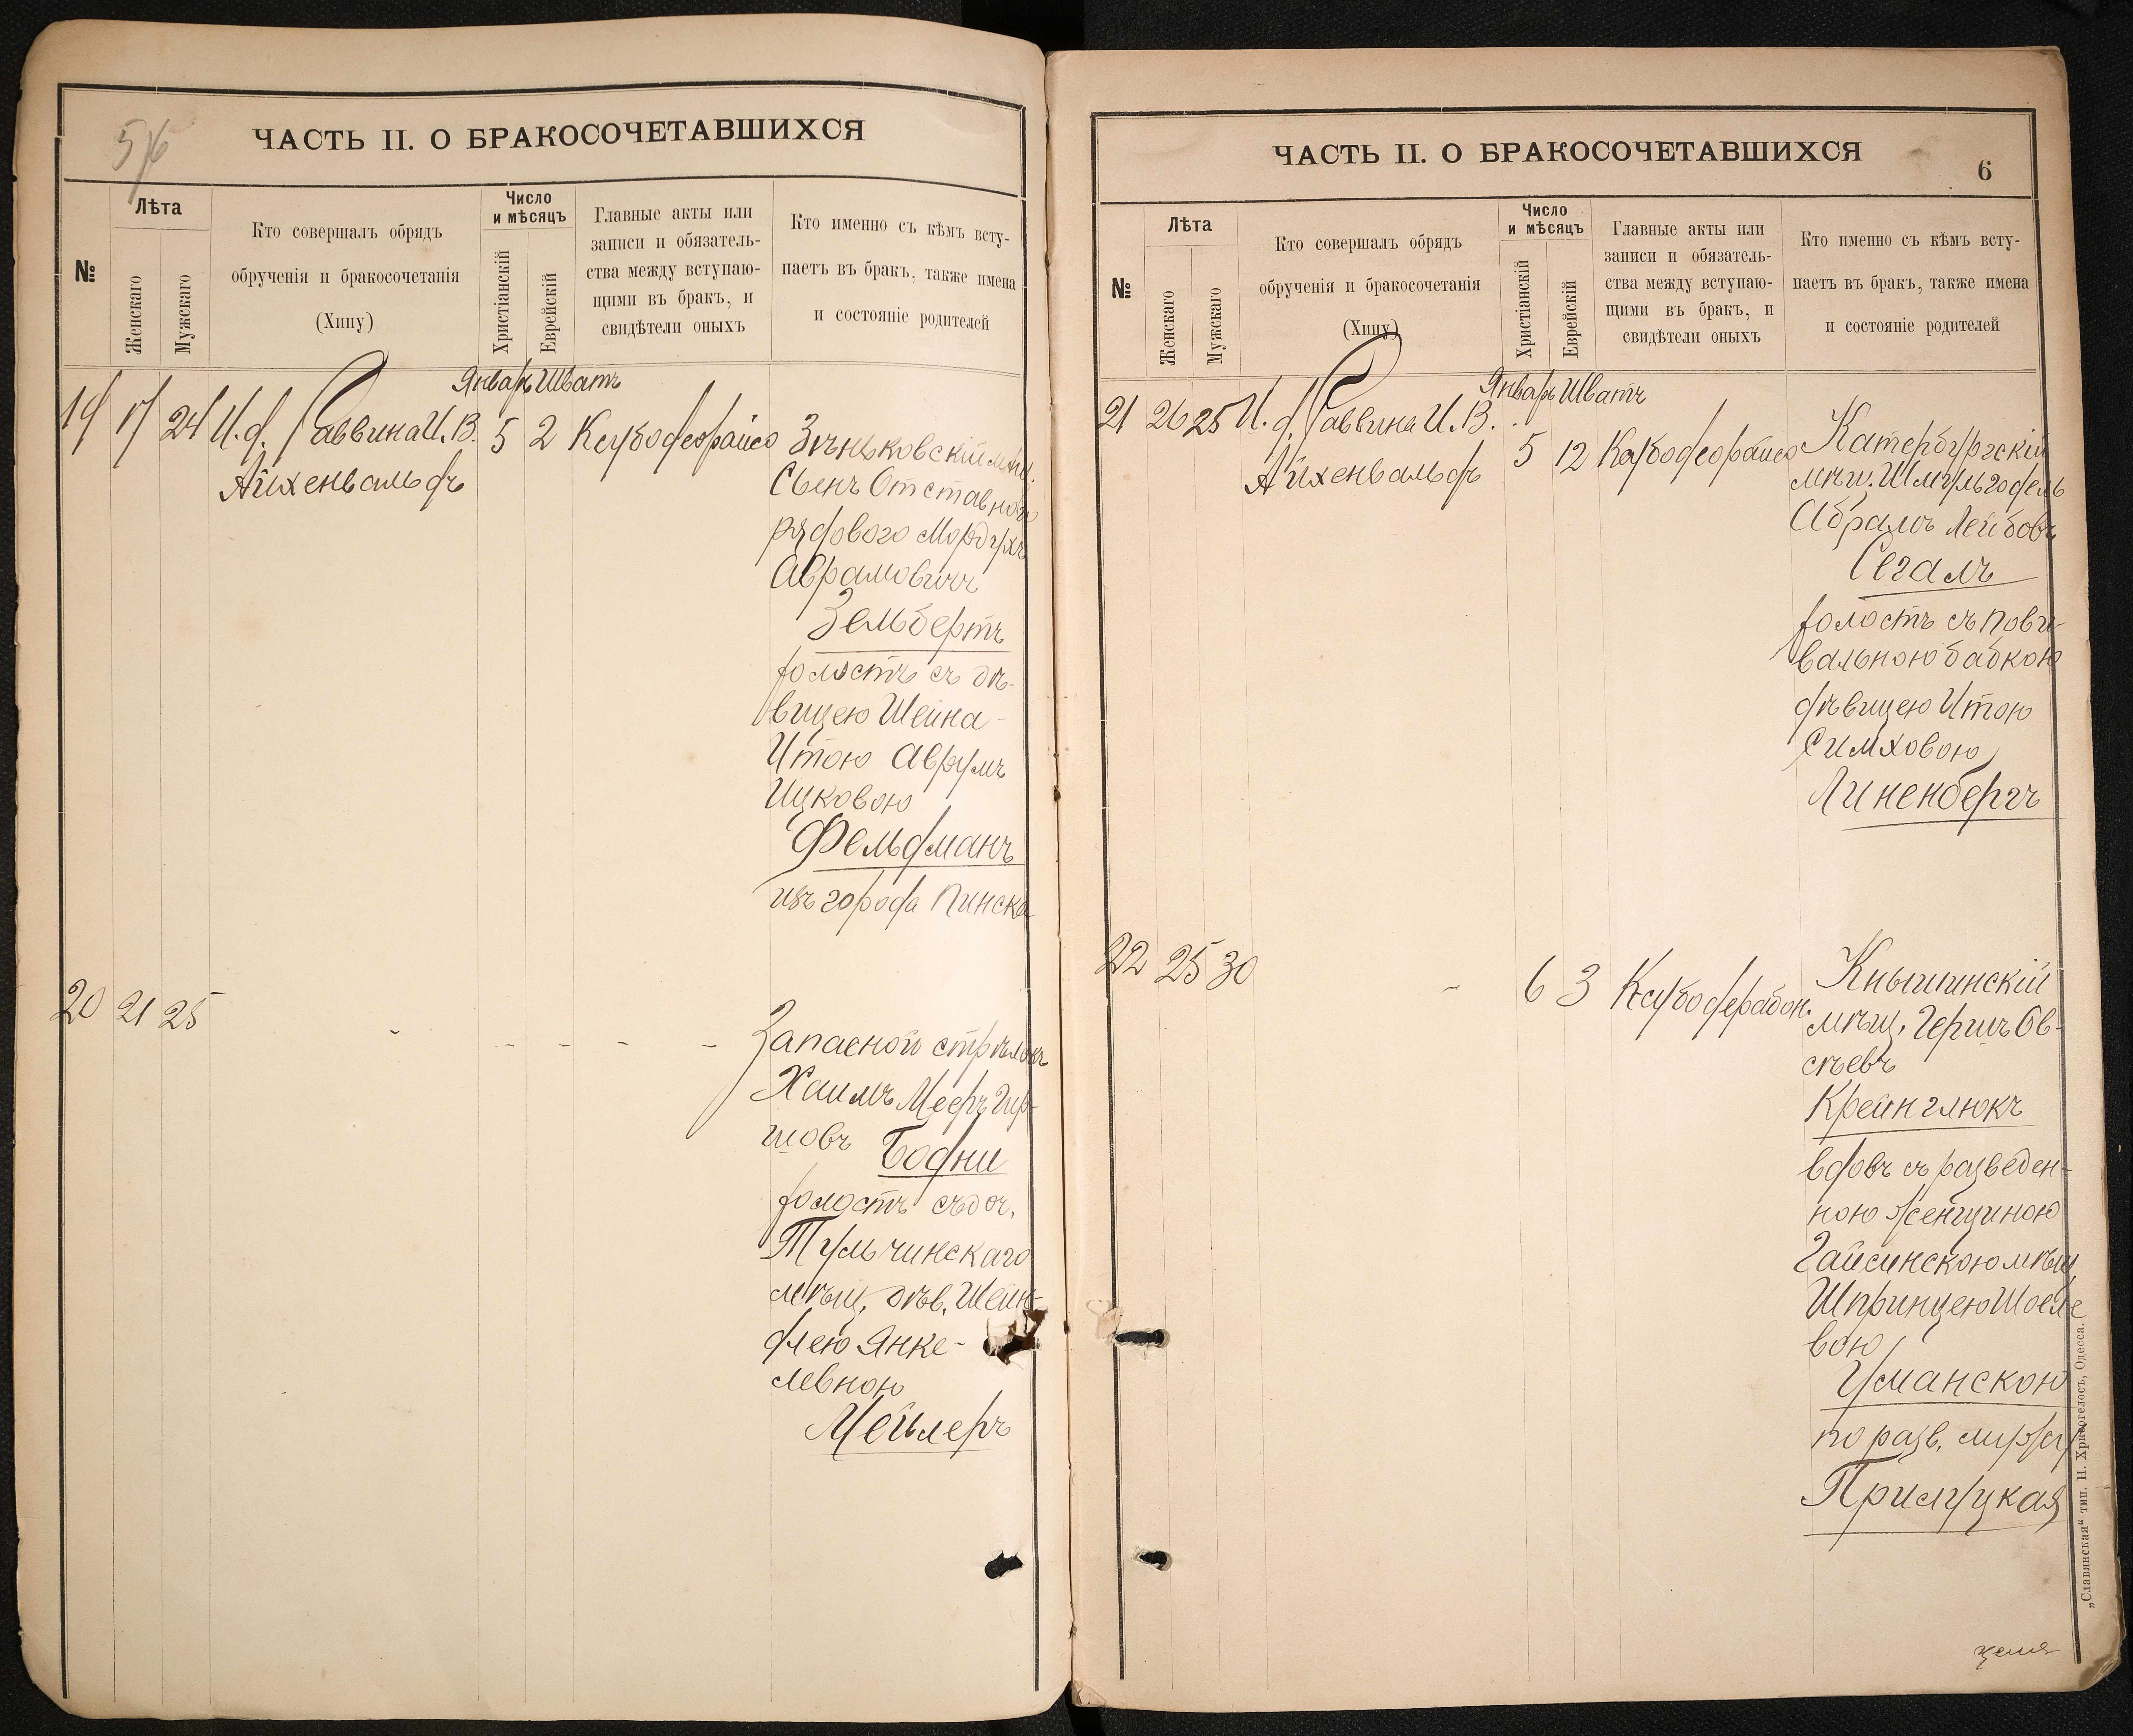 5/6
ЧАСТЬ II. О БРАКОСОЧЕТАВШИХСЯ
№
Лѣта
Женскаго
Мужскаго
Кто совершалъ обрядъ
обрученія и бракосочетанія
(Хипу)
Число
и мѣсяцъ
Христіанскій
Еврейскій
Главные акты или
записи и обязатель-
ства между вступаю-
щими въ бракъ, и
свидѣтели оныхъ
Кто именно съ кѣмъ всту-
паетъ въ бракъ, также имена
и состояніе родителей
Январь Шватъ
19 17 24 И. д. Раввина И. В. 5 2
Айхенвальдъ
Зѣньковскій мѣщ.
Сынъ Отставного
рядового Мордухъ
Аврамовичъ
Зельбертъ
холостъ съ дѣ-
вицею Шейна-
Итою Аврумъ
Ицковою
Фельдманъ
изъ города Пинска
20 21 25
Запасной стрѣлокъ
Хаимъ Мееръ Гир-
шовъ Бодни
холостъ съ доч.
Тульчинскаго
мѣщ. дѣв. Шейн-
длею Янке-
левною
Мейлеръ
ЧАСТЬ II. О БРАКОСОЧЕТАВШИХСЯ
6
№
Лѣта
Женскаго
Мужскаго
Кто совершалъ обрядъ
обрученія и бракосочетанія
(Хипу)
Число
и мѣсяцъ
Христіанскій
Еврейскій
Главные акты или
записи и обязатель-
ства между вступаю-
щими въ бракъ, и
свидѣтели оныхъ
Кто именно съ кѣмъ всту-
паетъ въ бракъ, также имена
и состояніе родителей
Январь Шватъ
21 26 25 И. д. Раввина И. В. 5 12
Айхенвальдъ
Катербургскій
мѣщ. Шмульгодель
Абрамъ Лейбовъ
Сегалъ
холостъ съ пови-
вальною бабкою
дѣвицею Итою
Симховою
Линенбергъ
22 25 30 6 3
Кнышинскій
мѣщ. Гершъ Ов-
сѣевъ
Крейнглюкъ
вдовъ съ разведен-
ною женщиною
Гайсинскою мѣщ
Шпринцею Шоеле
вою
Уманскою
по разв. мужу
Прилуцкая
„Славянская“ тип. Н. Хрисогелосъ, Одесса.